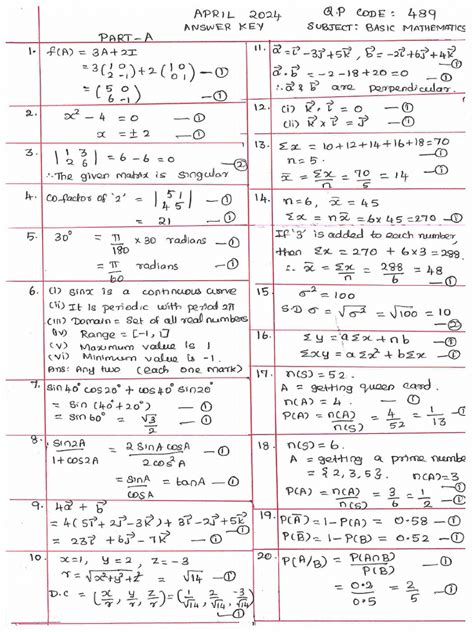 APRIL 2024
ANSWER KEY
Q.P CODE: 489
SUBJECT: BASIC MATHEMATICS
PART-A
1. f(A) = 3A+2I
= 3(1 0 / 2 -1) + 2(1 0 / 0 1) —①
= (5 0 / 6 -1) —①
2. x² - 4 = 0 —①
x = ±2 —①
3. |1 3 / 2 6| = 6-6 = 0 —②
∴The given matrix is singular
4. Co-factor of '2' = |5 1 / 4 5| —①
= 21 —①
5. 30° = π/180 × 30 radians —①
= π/60 radians —①
6. (i) sinx is a continuous curve
(ii) It is periodic with period 2π
(iii) Domain = Set of all real numbers
(iv) Range = [-1, 1]
(v) Maximum value is 1
(vi) Minimum value is -1.
Ans: Any two (each one mark)
7. sin40°cos20° + cos40°sin20°
= sin(40°+20°) —①
= sin60° = √3/2 —①
8. sin2A/1+cos2A = 2sinA cosA/2cos²A —①
= sinA/cosA = tanA —①
9. 4a⃗ + b⃗
= 23i⃗ + 6j⃗ - 7k⃗ —①
10. x=1, y=2, z=-3
r = √x²+y²+z² = √14 —①
D.C = (x/r, y/r, z/r) = (1/√14, 2/√14, -3/√14) —①
11. a⃗ = i⃗-3j⃗+5k⃗, b⃗ = -2i⃗+6j⃗+4k⃗
a⃗·b⃗ = -2-18+20 = 0 —①
∴a⃗ & b⃗ are perpendicular. —①
12. (i) k⃗·i⃗ = 0 —①
(ii) k⃗×i⃗ = j⃗ —①
13. Σx = 10+12+14+16+18=70
n = 5. —①
x̄ = Σx/n = 70/5 = 14 —①
14. n=6, x̄ = 45
Σx = nx̄ = 6x45 = 270 —①
If '3' is added to each number,
then Σx = 270 + 6×3 = 288.
∴ x̄ = Σx/n = 288/6 = 48 —①
15. σ² = 100
S.D σ = √σ² = √100 = 10 —②
16. Σy = aΣx + nb —①
Σxy = aΣx² + bΣx —①
17. n(S) = 52.
A = getting queen card.
n(A) = 4. —①
P(A) = n(A)/n(S) = 4/52 = 1/13 —①
18. n(S) = 6.
A = getting a prime number
= {2, 3, 5}. n(A)=3 —①
P(A) = n(A)/n(S) = 3/6 = 1/2 —①
19. P(Ā) = 1-P(A) = 0.58 —①
P(B̄) = 1-P(B) = 0.52 —①
20. P(A/B) = P(A∩B)/P(B) —①
= 0.2/0.5 = 2/5 —①